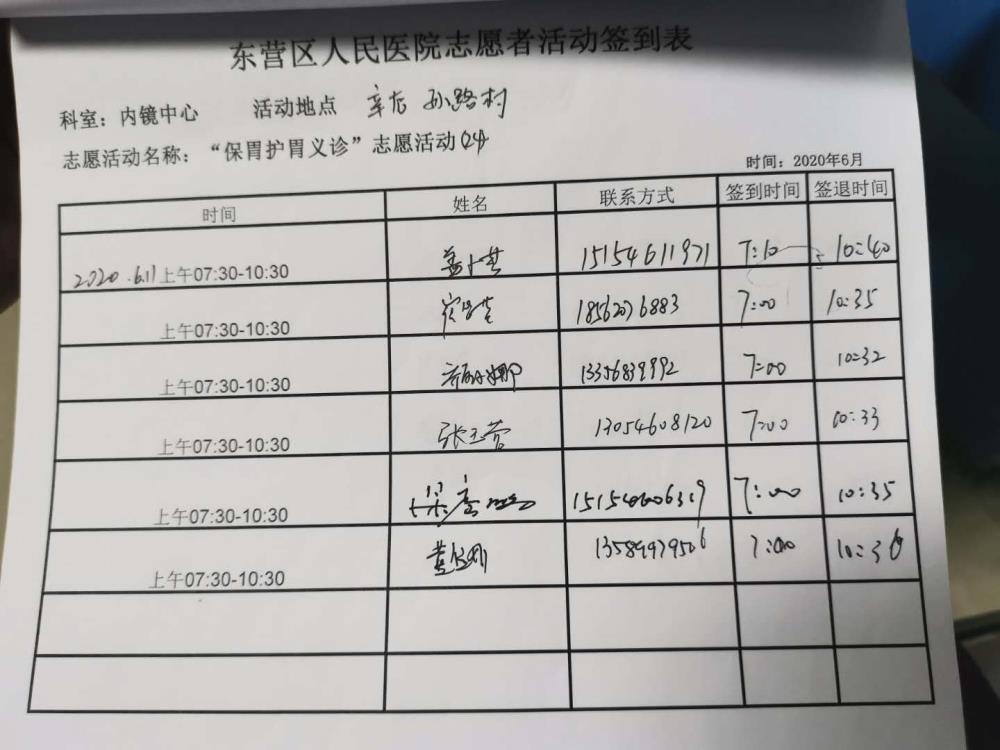 东营区人民医院志愿者活动签到表
科室：内镜中心 活动地点 辛店 孙路村
志愿活动名称：“保胃护胃义诊”志愿活动04
时间：2020年6月
时间 姓名 联系方式 签到时间 签退时间
2020.6.11 上午07:30-10:30 15154611971 7:10 10:40
上午07:30-10:30 18562076883 7:00 10:35
上午07:30-10:30 13356839992 7:00 10:32
上午07:30-10:30 张玉营 13054608120 7:00 10:33
上午07:30-10:30 7:00 10:35
上午07:30-10:30 13589979506 7:00 10:36